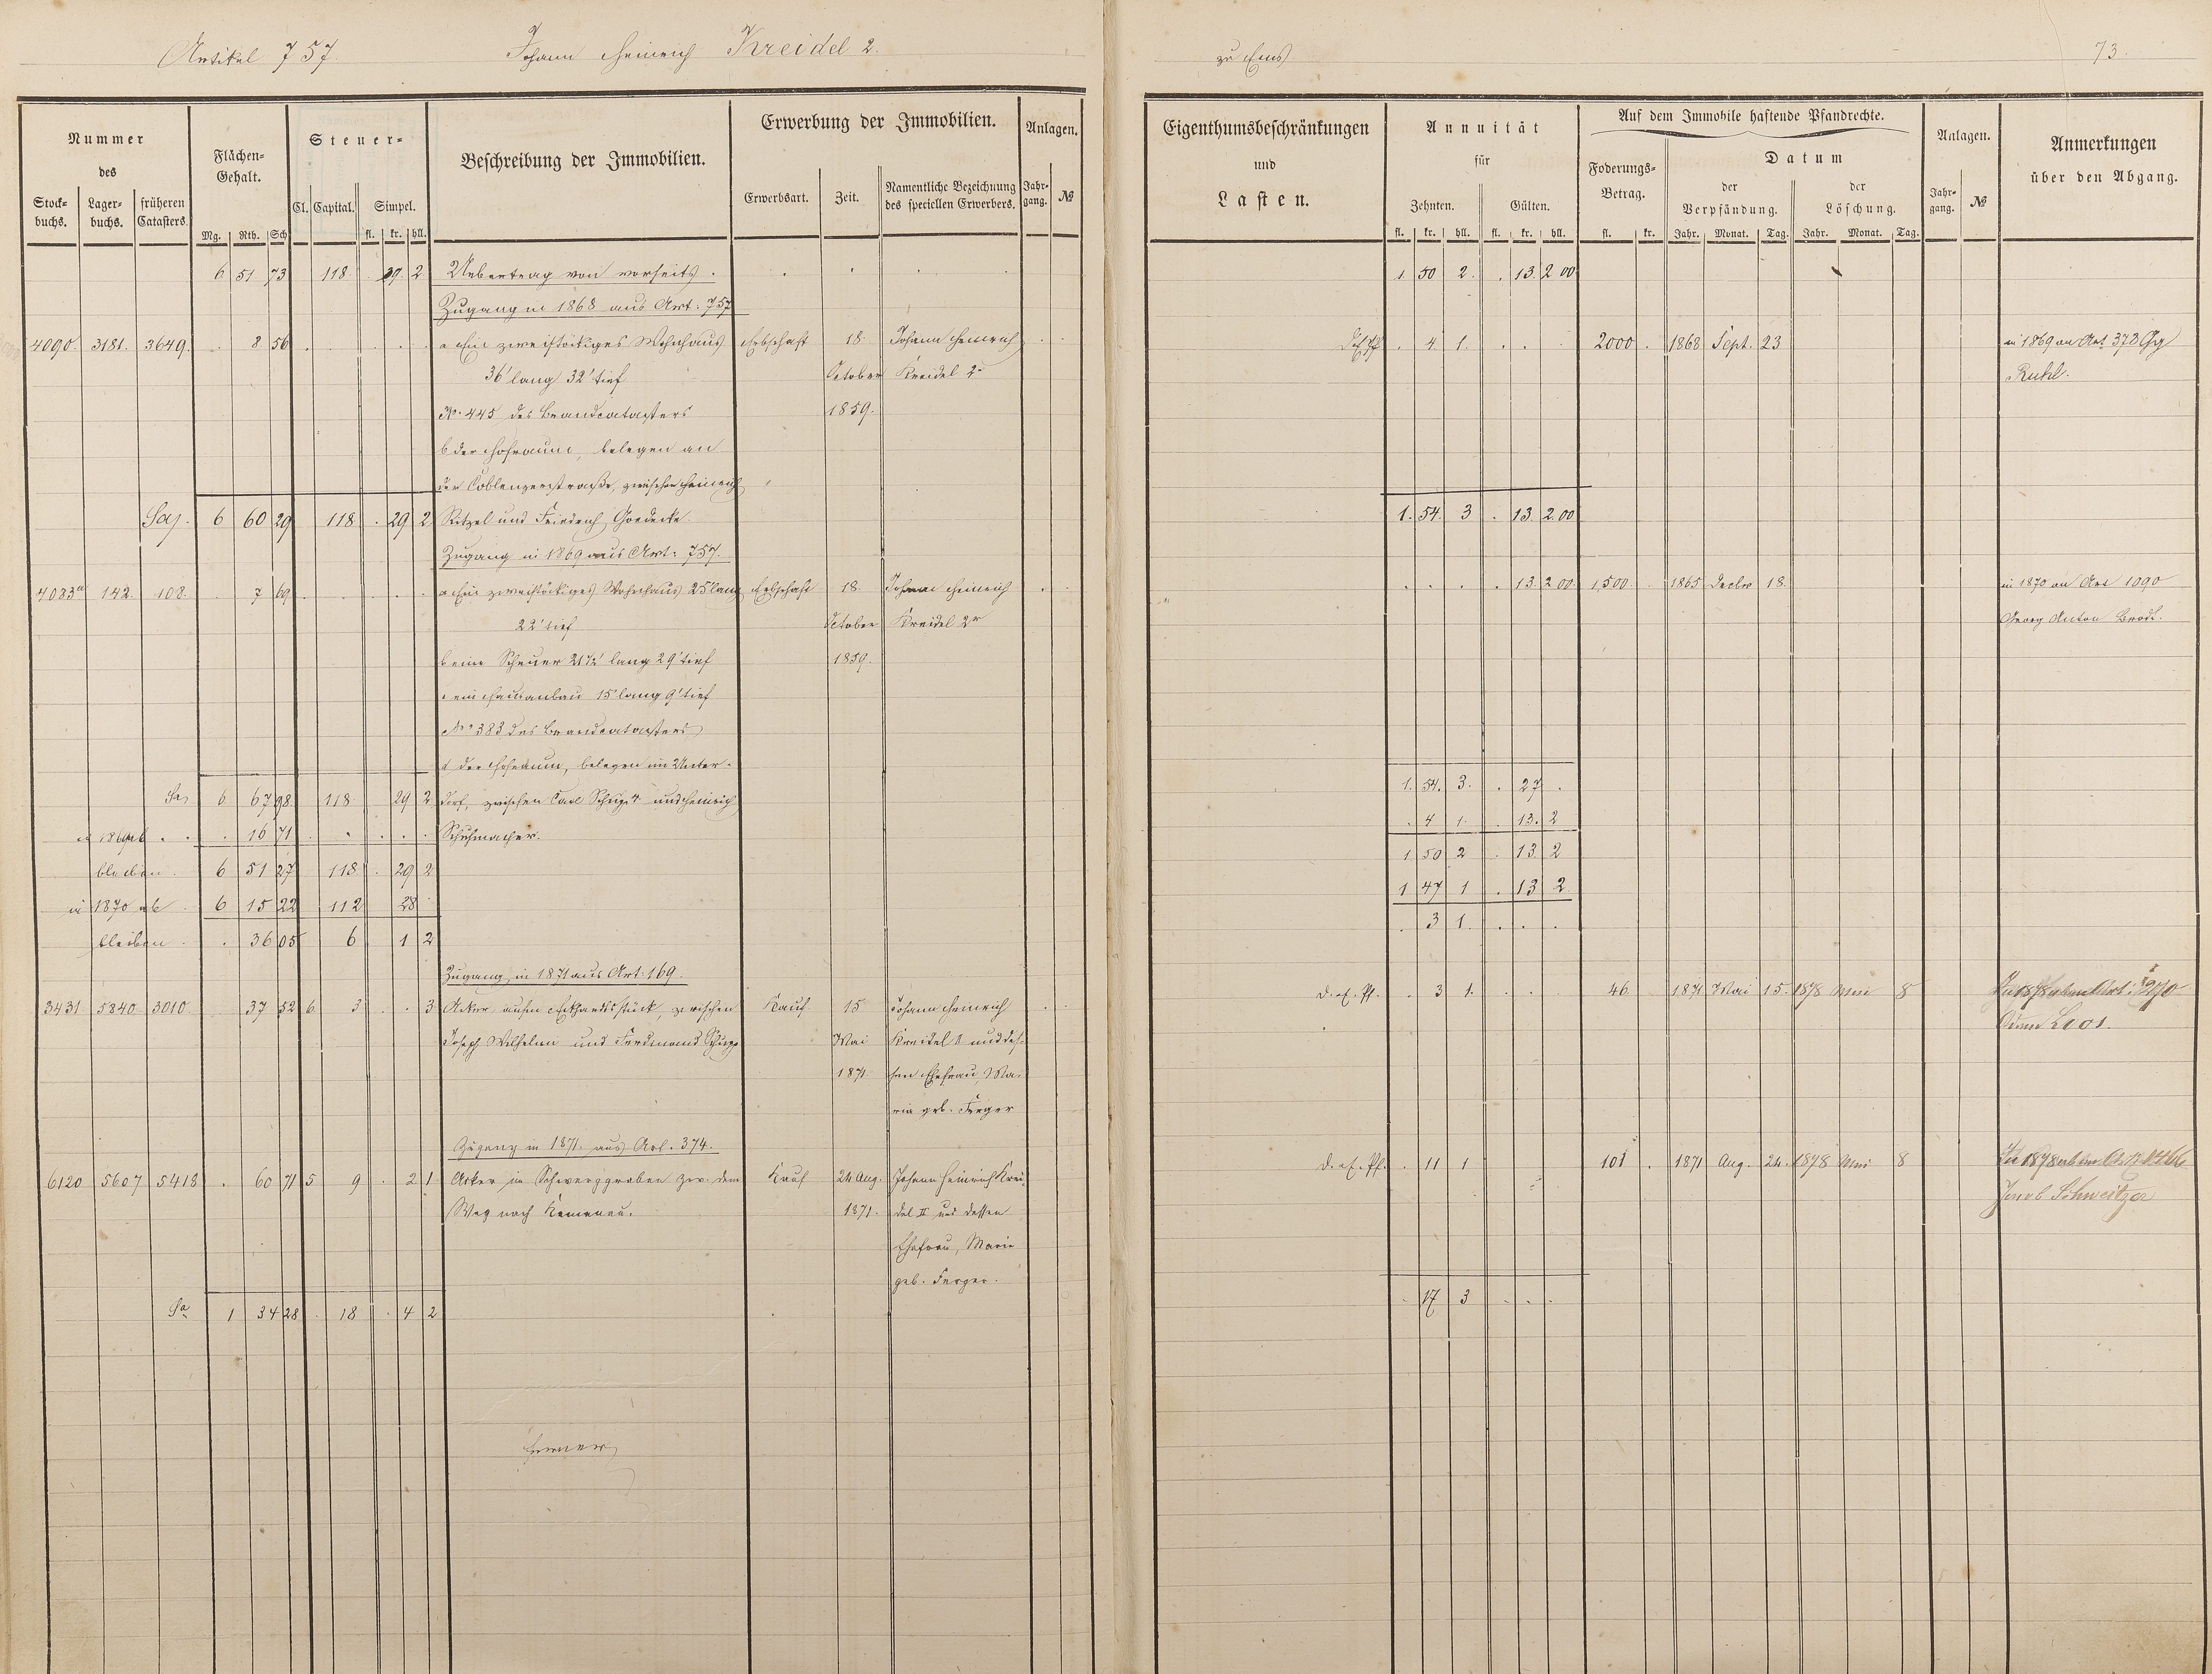 Artikel 757. Johann Heinrich Kreidel 2.
zu Ems. 73.
Nummer
des
Stock-
buchs.
Lager-
buchs.
früheren
Catasters.
Flächen-
Gehalt.
Mg. Rth. Sch
Steuer-
Cl. Capital. Simpel.
fl. kr. hll.
Beschreibung der Immobilien.
Erwerbung der Immobilien.
Erwerbsart. Zeit.
Namentliche Bezeichnung
des speciellen Erwerbers.
Anlagen.
Jahr-
gang.
№
Eigenthumsbeschränkungen
und
Lasten.
Annuität
für
Zehnten. Gülten.
fl. kr. hll. fl. kr. hll.
Auf dem Immobile haftende Pfandrechte.
Foderungs-
Betrag.
fl. kr.
Datum
der
Verpfändung.
Jahr. Monat. Tag.
der
Löschung.
Jahr. Monat. Tag.
Anlagen.
Jahr-
gang.
№
Anmerkungen
über den Abgang.
6 51 73 118 . 29 2 Uebertrag von vorseits. 1 50 2 . 13. 2 00
Zugang in 1868 aus Art: 757
4090. 3181. 3649. . 8 56 a Ein zweistöckiges Wohnhaus Erbschaft 18. Johann Heinrich . 4. 1. 2000 . 1868 Sept. 23 in 1869 an Art 378
36' lang 32' tief October Kreidel 2r Ruhl.
No. 445 des Brandcatasters 1859.
b der Hofraum, belegen an
der Coblenzerstraße, zwischen Heinrich
Sa. 6 60 29 118 . 29 2 Ritzel und Friedrich Goedecke. 1. 54. 3 . 13. 2.00
Zugang in 1869 aus Art: 757.
4083a 142 108. . 7 69 a Ein zweistöckiges Wohnhaus 25' lang Erbschaft 18. Johann Heinrich 13. 2 00 1,500 1865 Decbr 18. in 1870 an Art 1090
22' tief October Kreidel 2r Georg Anton
b eine Scheuer 21½' lang 29' tief 1859.
c ein Hausanbau 15' lang 9' tief
No 383 des Brandcatasters
d der Hofraum, belegen im Unter-
Sa. 6 67 98. 118 29 2 dorf, zwischen Carl und Heinrich 1. 54. 3. . 27 .
in 1869 ab . 16 71 Schuhmacher. . 4 1. . 13. 2
bleiben. 6 51 27 118 . 29 2 1 50 2 . 13 2
in 1870 ab 6 15 22 112 28 1 47 1 . 13 2
bleiben. . 36 05 6 1 2 . 3 1.
Zugang in 1871 aus Art: 169.
3431 5840 3010. 37 52 6 3 . . 3 Acker aufm zwischen Kauf 15 Johann Heinrich D. E. Pf. . 3 1. 46 1871 Mai 15. 1878 Mai 8 In 1878 ab
Joseph Wilhelmi und Ferdinand Mai Kreidel 2 und des- Loos.
1871 sen Ehefrau, Ma-
rie geb. Ferger
Zugang in 1871. aus Art. 374.
6120 5607 5418 . 60 71 5 9 . 2 1 Acker im Schweizgraben zw. dem Kauf 24 Aug. Johann Heinrich Krei- D. E. Pf. . 11 1 101 . 1871 Aug. 24. 1878 Mai 8 In 1878 ab
Weg nach Kemenau. 1871. del II und dessen Jacob Schweitzer
Ehefrau, Marie
geb. Ferger.
Sa 1 34 28 . 18 . 4 2 . 17 3
ferner